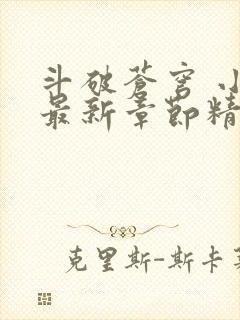 斗破苍穹 小
最新章節精
克里斯-斯卡